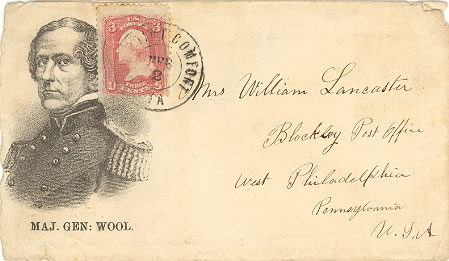 U.S. POSTAGE
3 3
U S
THREE CENTS
POINT COMFORT
2
VA
Mrs William Lancaster
Blockley Post Office
West Philadelphia
Pennsylvania
U.S.A
MAJ. GEN: WOOL.